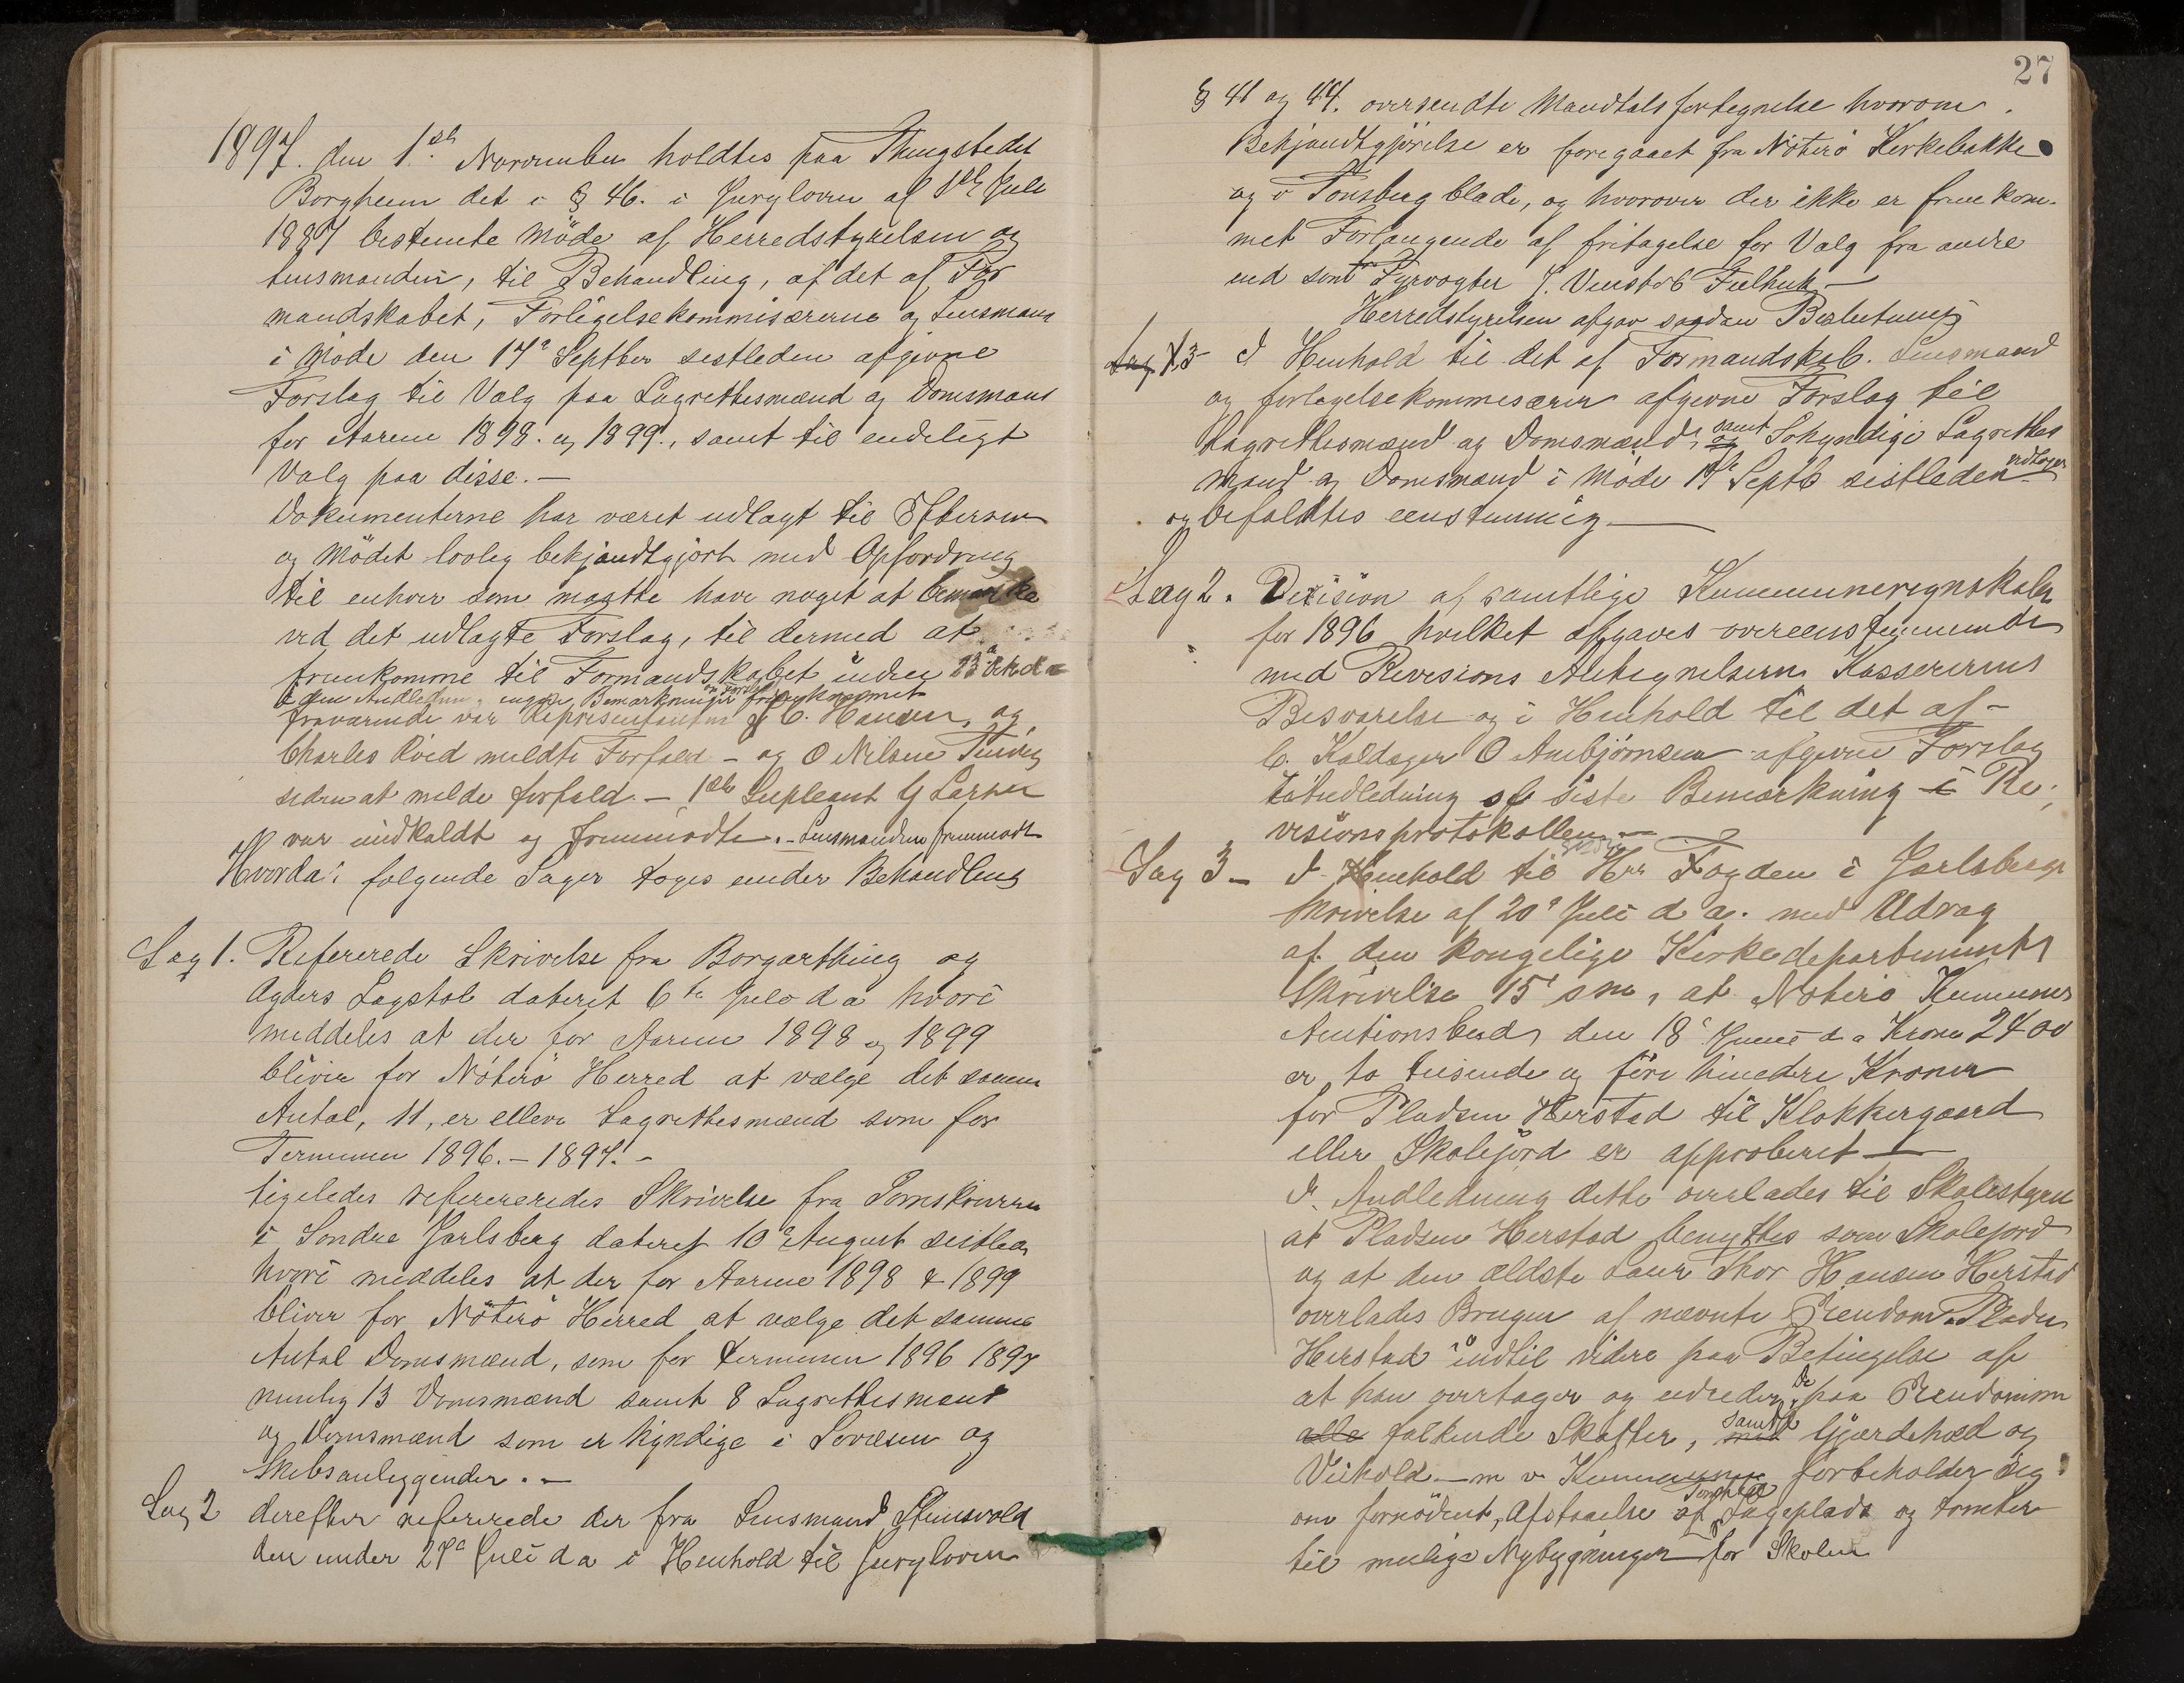 1897. den 1ste November holdtes paa Thingstedet
Borgheim det i § 46. i Juryloven af 1ste Juli
1887 bestemte Möde af Herredstyrelsen og
Lensmanden, til Behandling, af det af For
mandskabet, Forligelsekommisærerne og Lensmans
i Möde den 17de Septber sestleden afgivne
Forslag til Valg paa Lagrettesmænd og Domsmans
for Aarene 1898. og 1899., samt til endeligt
Valg paa disse. —
Dokumenterne har været udlagt til Eftersyn
og Mödet lovlig bekjendtgjort med Opfordring
til enhver som maatte have noget at bemærke
ved det udlagte Forslag, til dermed at
fremkomme til Formandskabet inden 23de
I den Andledning, ingen Bemærkninger fremkommet
fraværende var Representanten C. Hansen, og
Charles Röed meldte Forfald — og O Nilsen
seden at melde forfald. — 1ste Supleant G Larsen
var indkaldt og fremmödte. — Lensmanden fremmödt
Hvorda: folgende Sager toges under Behandling
Sag 1. Refererede Skrivelse fra Borgarthing og
Agders Lagstol dateret 6te Juli da hvori
meddeles at der for Aarene 1898 og 1899
bliver for Nöterö Herred at vælge det samme
Antal, 11, er elleve Lagrettesmænd som for
Terminen 1896. — 1897. —
Ligeledes refereredes Skrivelse fra Sorenskriveren
i Söndre Jarlsberg dateret 10de August sestled
hvori meddeles at der for Aarene 1898 & 1899
bliver for Nöterö Herred at vælge det samme
Antal Domsmænd, som for terminen 1896 1897
nemlig 13 Domsmænd samt 8 Lagrettesmænd
og Domsmænd som er kyndige i Sövæsen og
Skibsanliggender. —
Sag 2 derefter refererede der fra Lensmand Steinsvold
den under 27de Juli da i Henhold til Jurylovens
27
§ 41 og 44. oversendte Mandtalsfortegnelse hvorom
Bekjendtgjörelse er foregaaet fra Nöterö Kirkebakke
og i Tonsberg blade, og hvorover der ikke er frem kom-
met Forlangende af fritagelse for Valg fra andre
end som Fyrvogter J.
Herredstyrelsen afgav saadan Beslutning
Sag 3 — I Henhold til det af Formandskab. Lensmand
og forlagelsekommisærer afgivne Forslag til
Lagrettesmænd og Domsmænd, og samt Sökyndige Lagrettes
mænd og Domsmænd i Möde 17de Septb sistleden vedtages
og befaldtes eenstemmig. —
Sag 2. Decision af samtlige Kommuneregnskaber
for 1896 hvilket afgaves overeenstemmende
med Revisions Antegnelsern Kassererens
Besvarelse og i Henhold til det af —
C. Kaldager O Ambjörnsen afgivne Forslag
til Andledning af siste Bemærkning i Re-
visionsprotokollen. —
Sag 3 — I Henhold til Herr Fogden i Jarlsbergs
Skrivelse af 20de Juli d a. med Udrag
af den kongelige Kirkedepartements
Skrivelse 15de sm, at Nöterö Kommunes
Auctionsbud den 18de Juni d a Kroner 2400
er to tusende og fire hundre Kroner
for Pladsen Herstad til Klokkergaard
eller Skolejord er approberet —
I Andledning dette overlades til Skolestyre
at Pladsen Herstad benyttes som Skolejord
og at den ældste Lærer Thor Hansen Herstad
overlades Brugen af nævnte Eiendom Pladsen
Herstad indtil videre paa Betingelse af
at han overtager og udreder De paa Eiendommen
alle faldende Skatter, med samt Gjærdehold og
Veihold — m v. Kommunen forbeholder sig
om fornödent, Afstaaelse af Tomter Lageplads og tomter
til mulige Nybygninger for Skolen